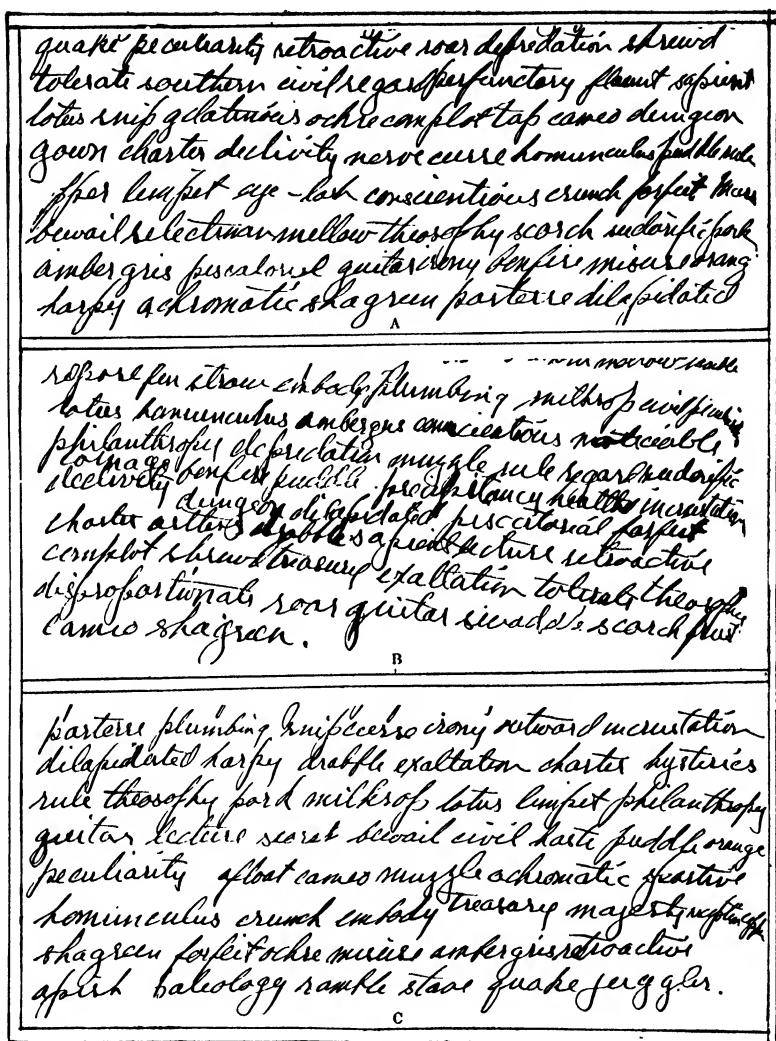 quake peculiarity retroactive roar depredation shrewd
tolerate southern civil regard perfunctory flaunt sapient
lotus snip gelatinous ochre complot tap cameo dungeon
gown charter declivity nerve curse homunculus puddle rule
limpet eye-lash conscientious crunch forfeit
bewail selectman mellow theosophy scorch sudorific pork
ambergris piscatorial guitar irony bonfire misuse orang
harpy achromatic shagreen parterre dilapidated
A
repose fen straw embody plumbing milksop civil
lotus homunculus ambergris conscientious noticeable
philanthropy depredation muzzle rule regard sudorific
declivity bonfire puddle health incrustation
dungeon dilapidated piscatorial forfeit
charter drabble sapient lecture retroactive
complot shrewd treasury exaltation tolerate theosophy
disproportionate roar guitar scorch
cameo shagreen.
B
parterre plumbing snip curse irony outward incrustation
dilapidated harpy drabble exaltation charter hysterics
rule theosophy pard milksop lotus limpet philanthropy
guitar lecture secret bewail civil haste puddle orange
peculiarity afloat cameo muzzle achromatic sportive
homunculus crunch embody treasury majesty
shagreen forfeit ochre misuse ambergris retroactive
apish baleology ramble stave quake juggler.
C